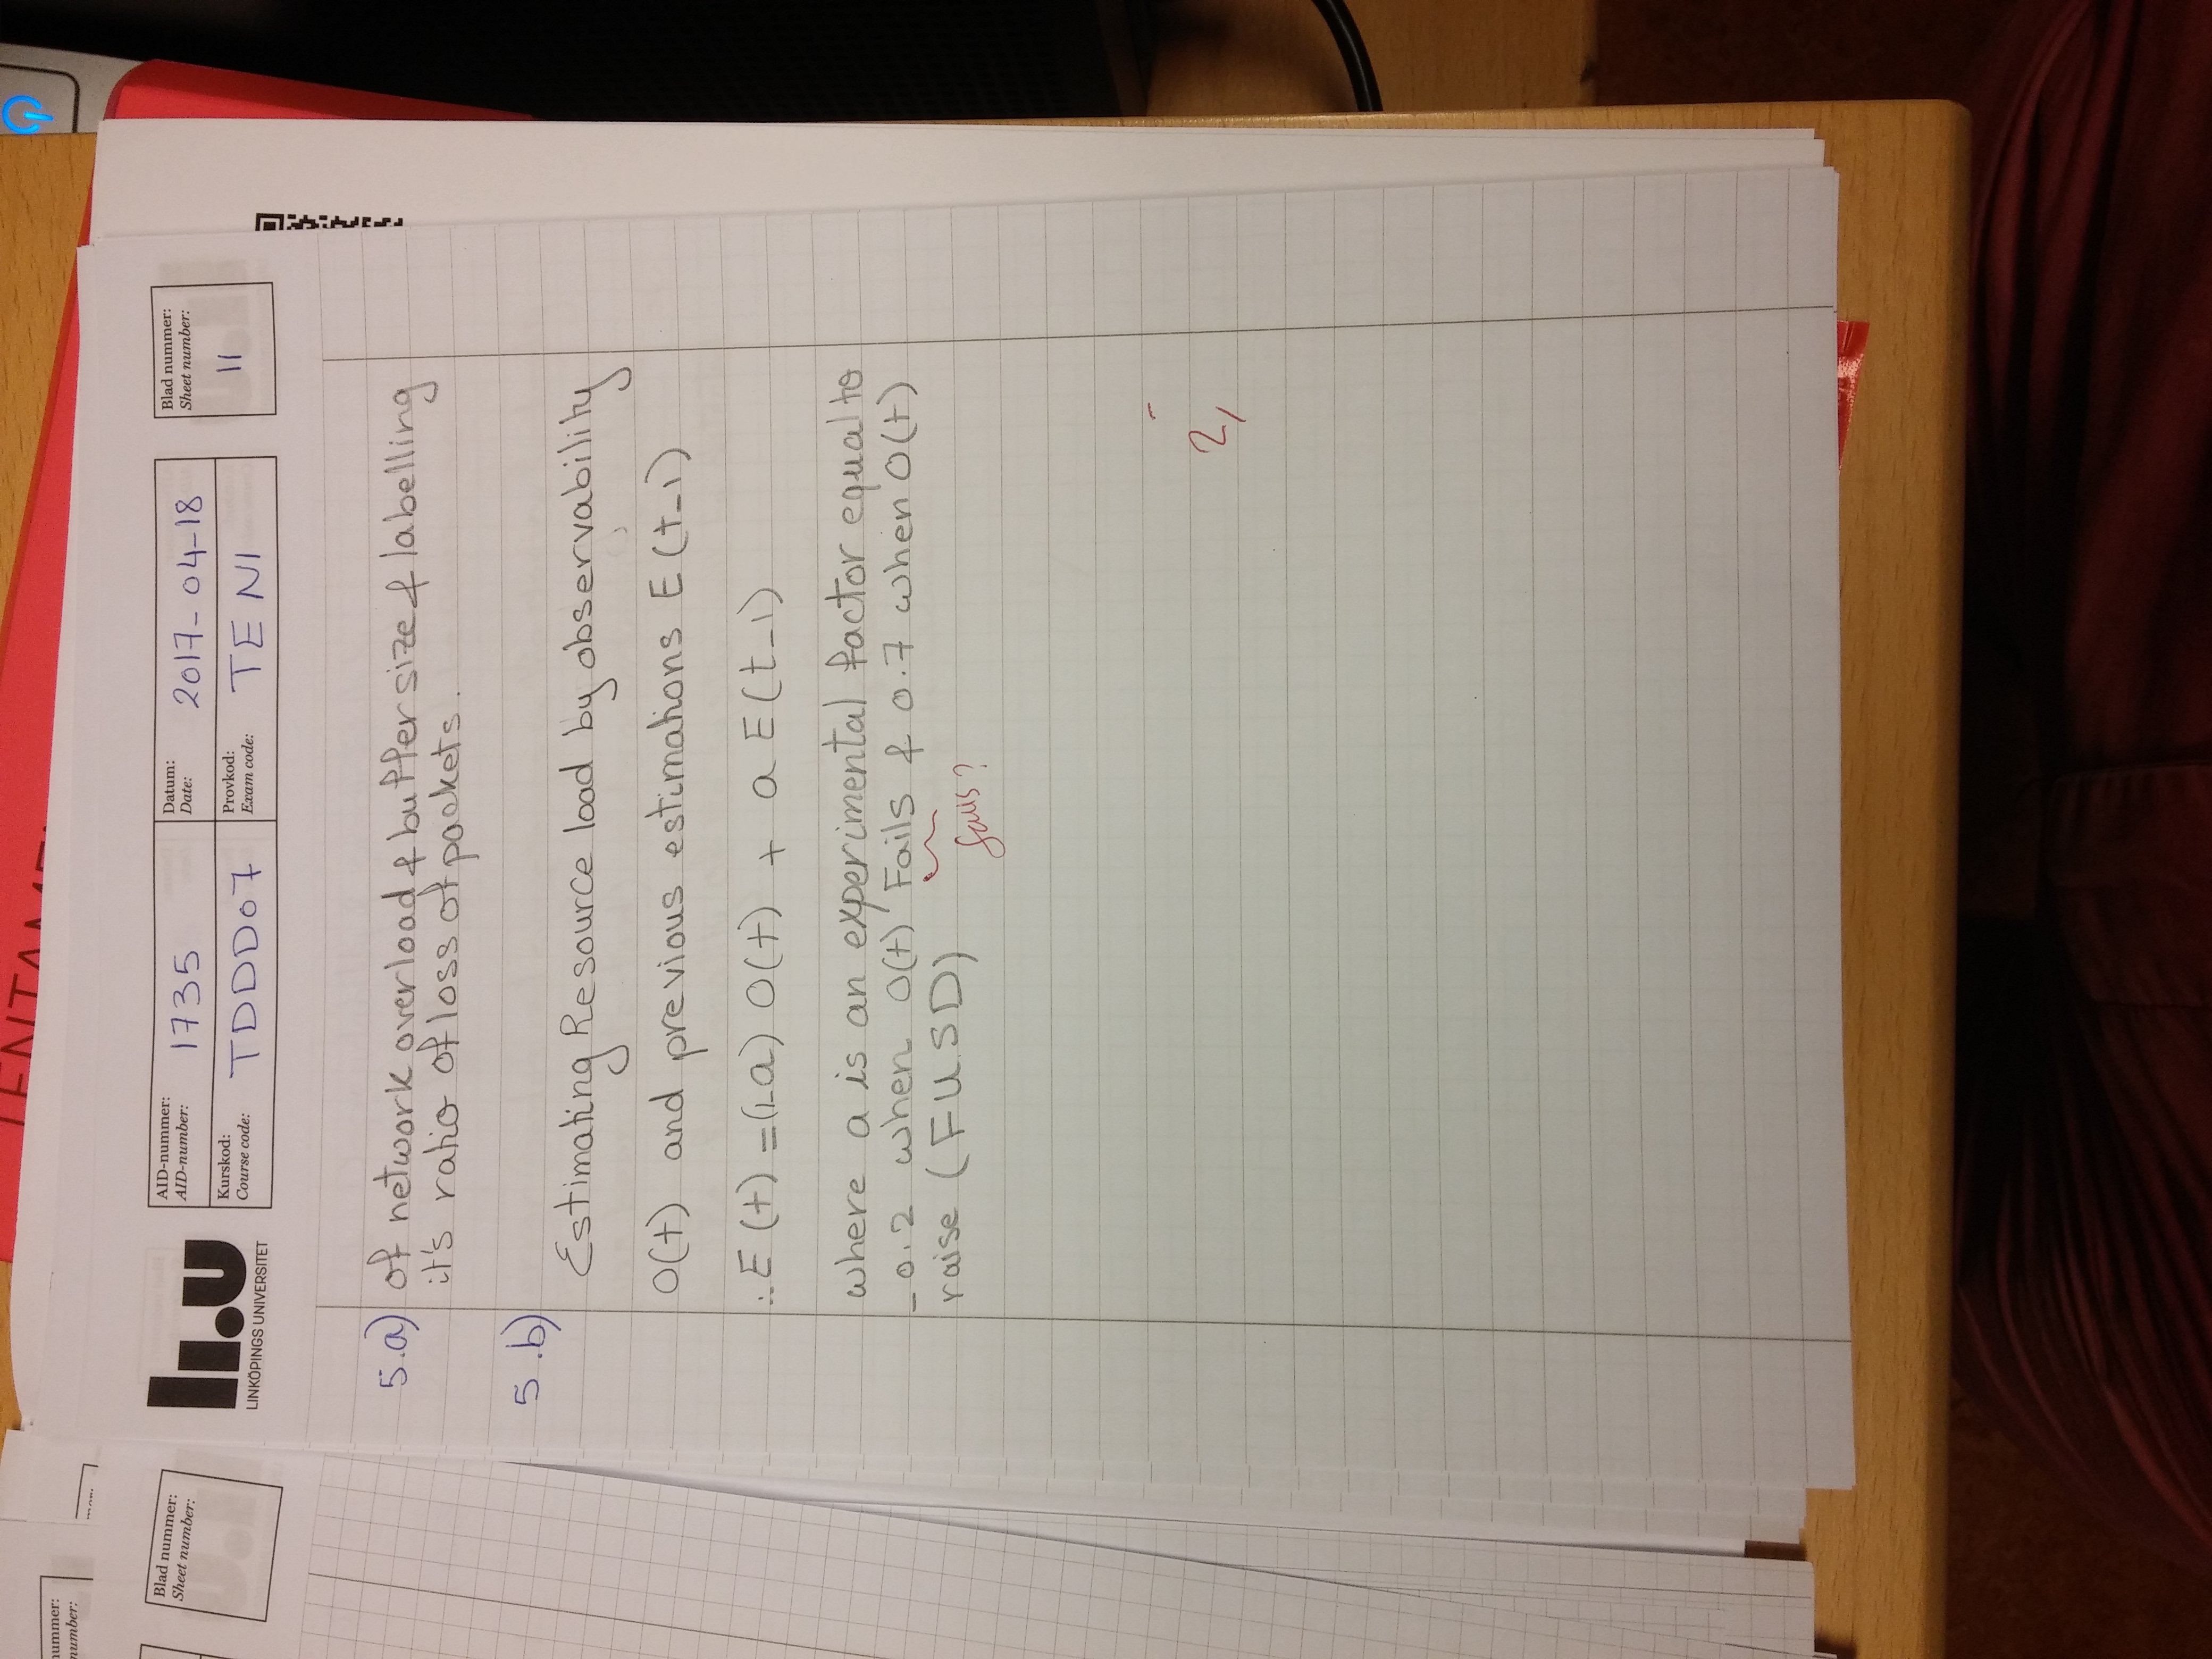 ENTAME
LINKÖPINGS UNIVERSITET
AID-nummer:
AID-number:
1735
Datum:
Date:
2017-04-18
Blad nummer:
Sheet number:
11
Kurskod:
Course code:
TDDD07
Provkod:
Exam code:
TEN1
5.a) of network overload & buffer size & labelling
it's ratio of loss of packets.
5.b)
Estimating Resource load by observability
O(t) and previous estimations E(t-1)
∴ E(t) = (1-a) O(t) + a E(t-1)
where a is an experimental factor equal to
-0.2 when O(t) Fails & 0.7 when O(t)
raise (FUSD)
falls?
2,
Blad nummer:
Sheet number:
nummer:
number: